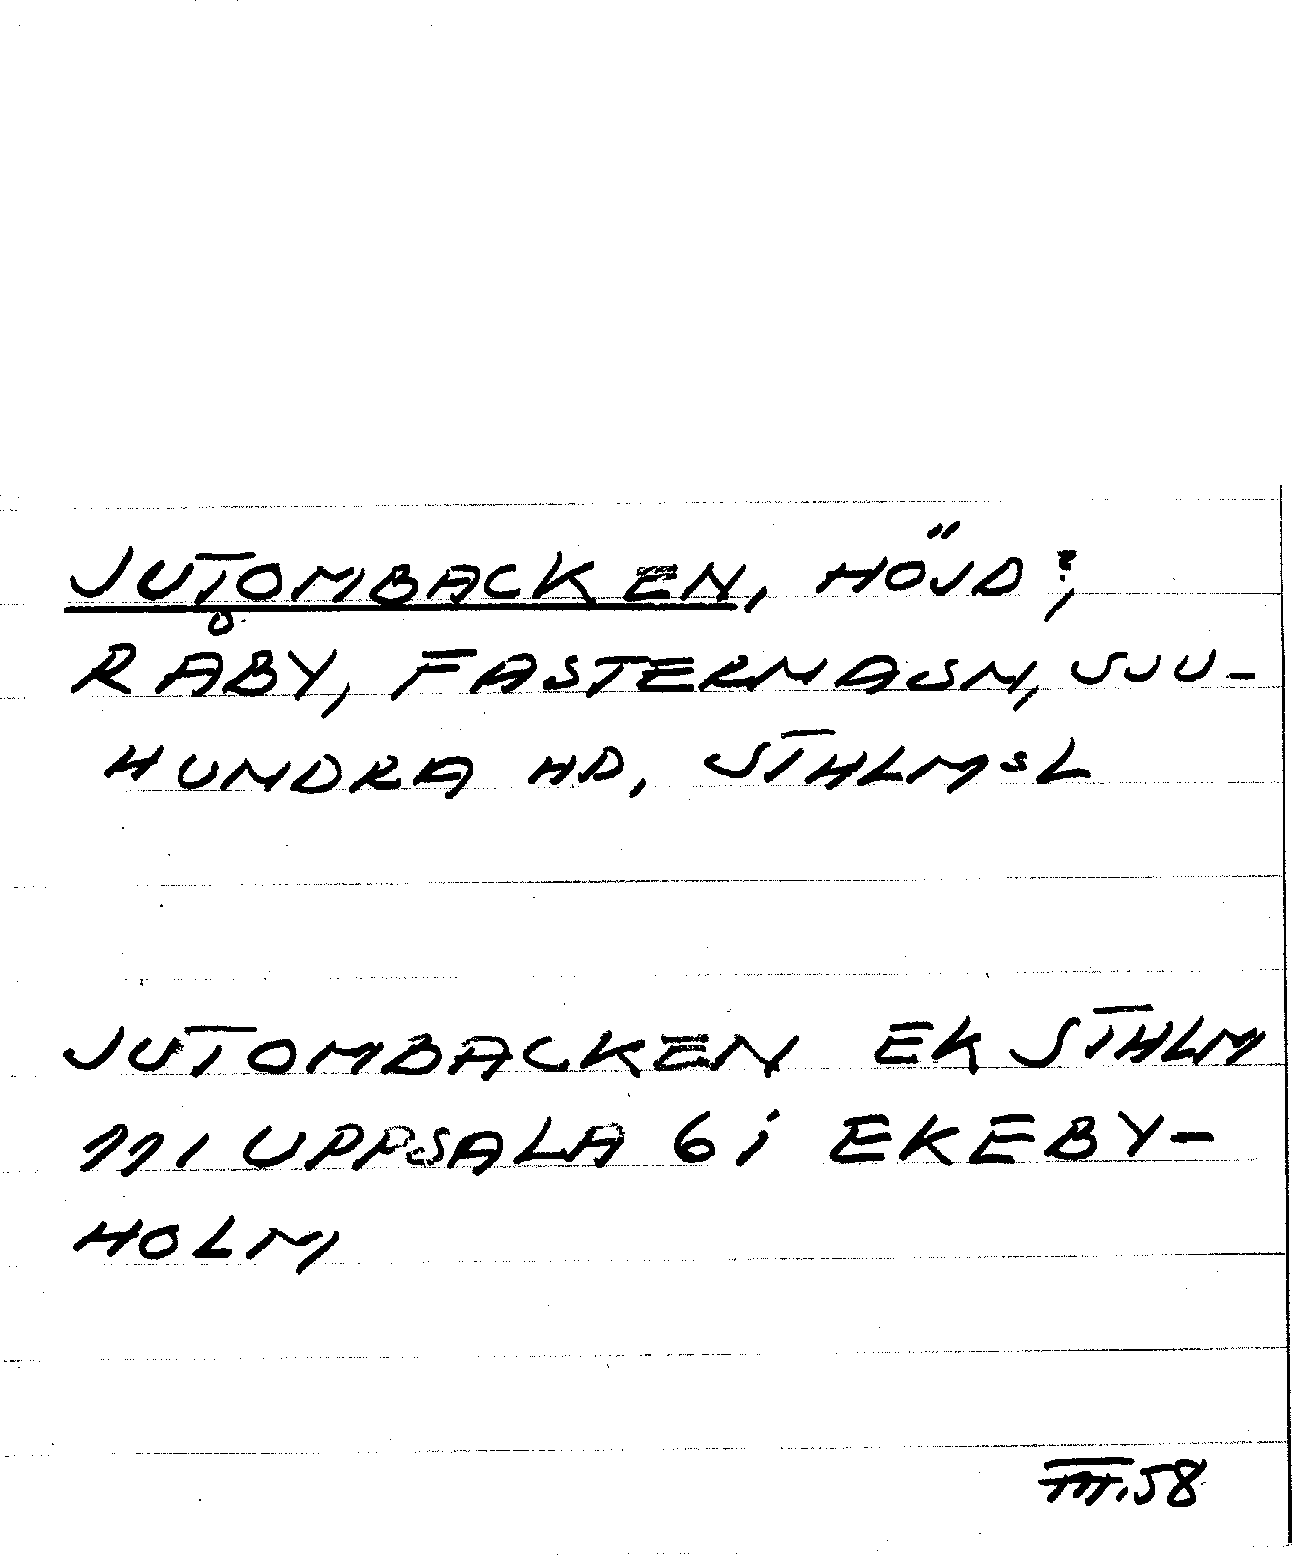 JUTOMBACKEN, HÖJD?,
RÅBY, FASTERNA SN, SJU-
HUNDRA HD, STHLMSL
JUTOMBACKEN EK STHLM
111 UPPSALA 6 i EKEBY-
HOLM